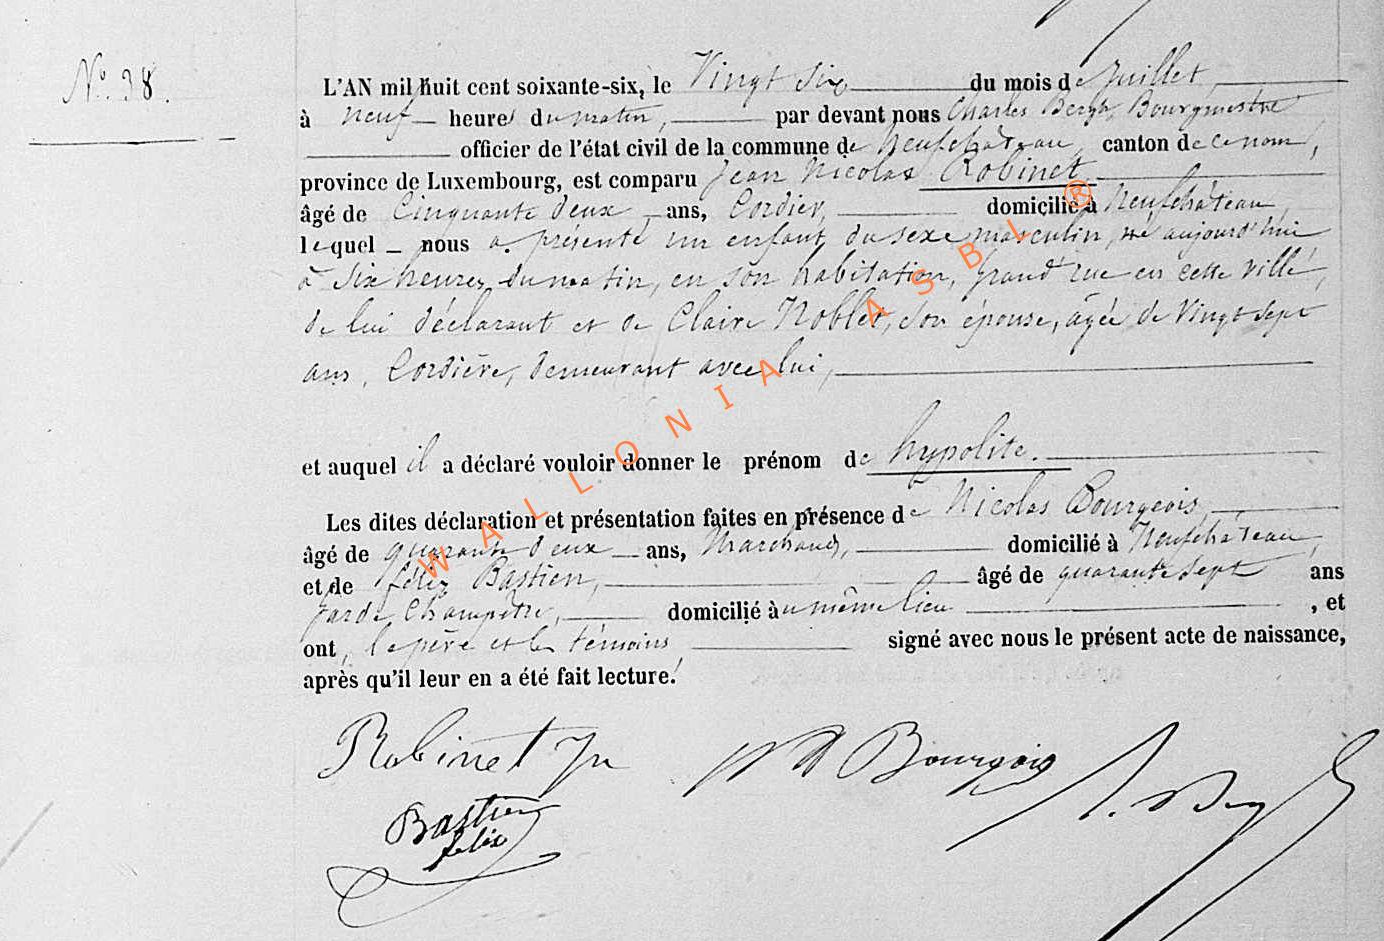 N° 38.
L'AN mil huit cent soixante-six, le Vingt Six du mois de Juillet,
à neuf heures du matin, par devant nous Charles Bergh, Bourgmestre
officier de l'état civil de la commune de Neufchâteau, canton de ce nom,
province de Luxembourg, est comparu Jean Nicolas Robinet
âgé de Cinquante deux ans, Cordier, domicilié à Neufchâteau,
lequel nous a présenté un enfant du sexe masculin, né aujourd'hui
à Six heures du matin, en son habitation, grand'rue en cette ville,
de lui déclarant et de Claire Noblet, son épouse, âgée de Vingt Sept
ans, Cordière, demeurant avec lui,
et auquel il a déclaré vouloir donner le prénom de hypolite.
Les dites déclaration et présentation faites en présence de Nicolas Bourgeois,
âgé de quarante deux ans, Marchand, domicilié à Neufchâteau,
et de félix Bastien, âgé de quarante Sept ans
garde Champêtre, domicilié au même lieu , et
ont, le père et les témoins signé avec nous le présent acte de naissance,
après qu'il leur en a été fait lecture.
Robinet Jn Bourgois
Bastien
felix
WALLONIA ASBL ®